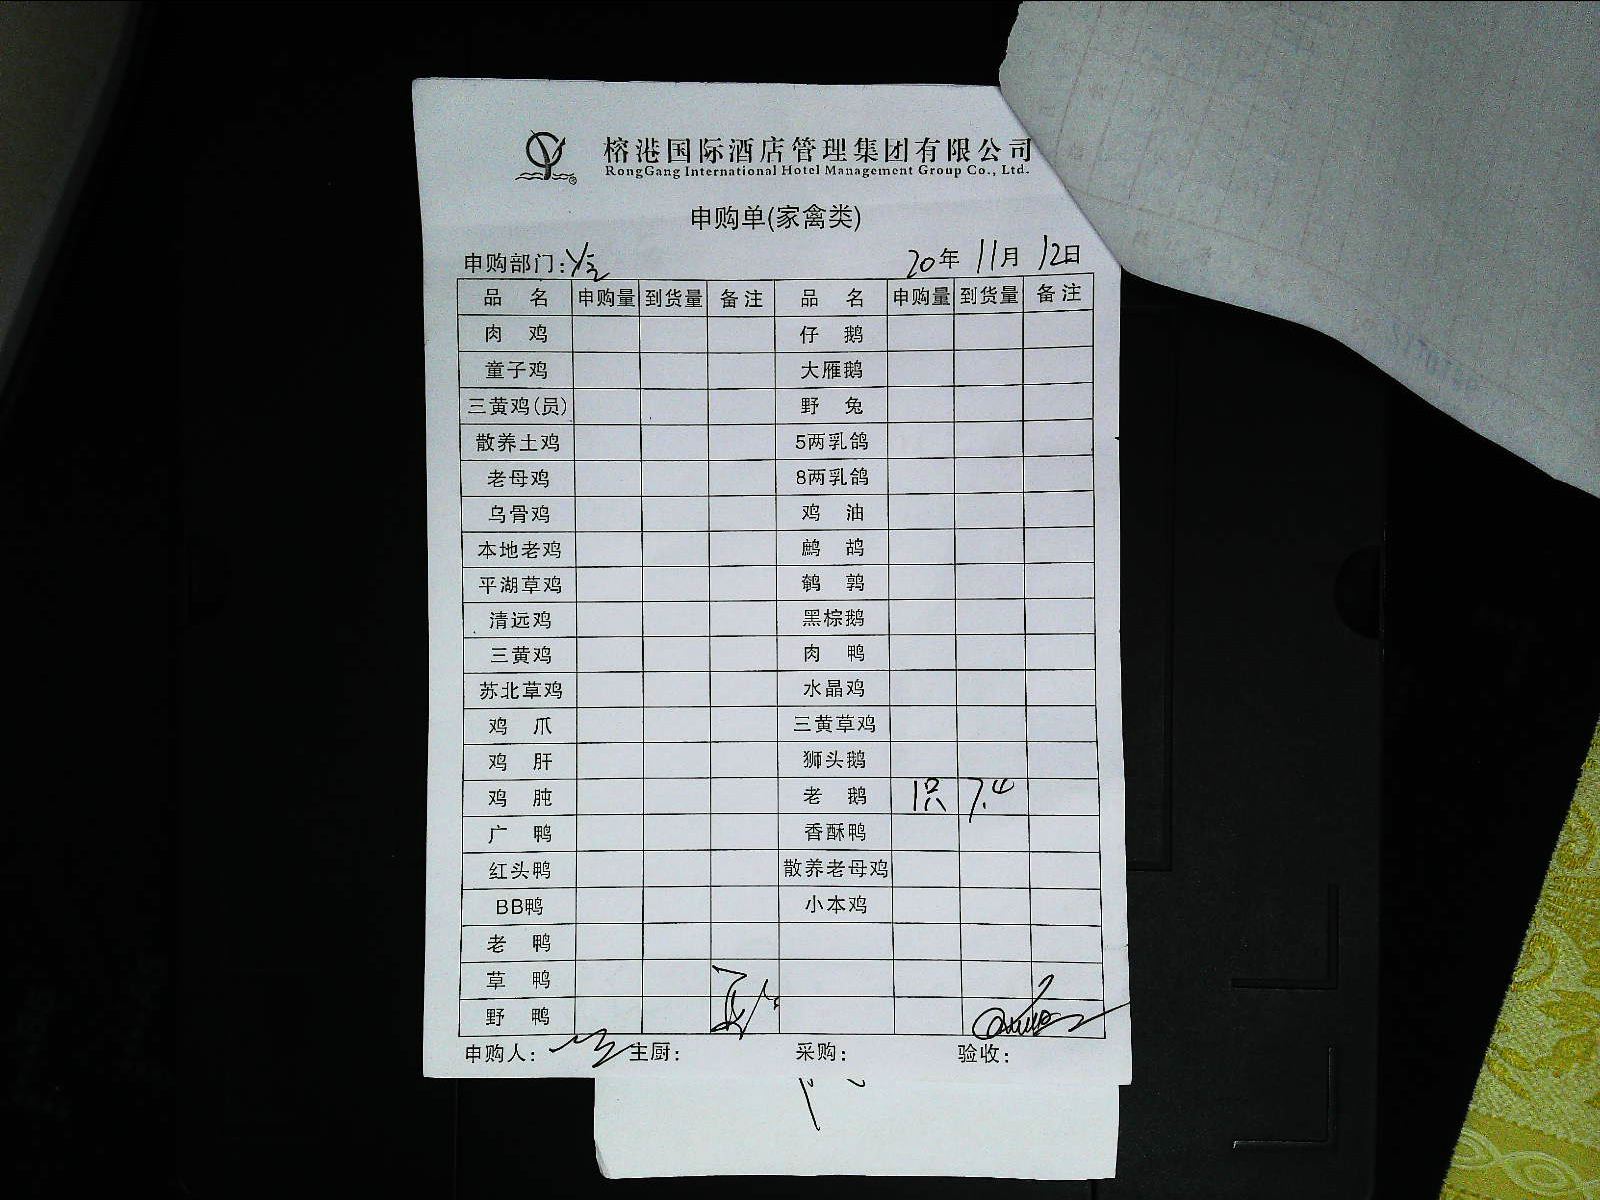 榕港国际酒店管理集团有限公司
RongGang International Hotel Management Group Co., Ltd.
申购单(家禽类)
申购部门: 20年 11月 12日
品 名 申购量 到货量 备注 品 名 申购量 到货量 备注
肉 鸡 仔 鹅
童子鸡 大雁鹅
三黄鸡(员) 野 兔
散养土鸡 5两乳鸽
老母鸡 8两乳鸽
乌骨鸡 鸡 油
本地老鸡 鹧 鸪
平湖草鸡 鹌 鹑
清远鸡 黑棕鹅
三黄鸡 肉 鸭
苏北草鸡 水晶鸡
鸡 爪 三黄草鸡
鸡 肝 狮头鹅
鸡 肫 老 鹅 1只 7.4
广 鸭 香酥鸭
红头鸭 散养老母鸡
BB鸭 小本鸡
老 鸭
草 鸭
野 鸭
申购人: 主厨: 采购: 验收: